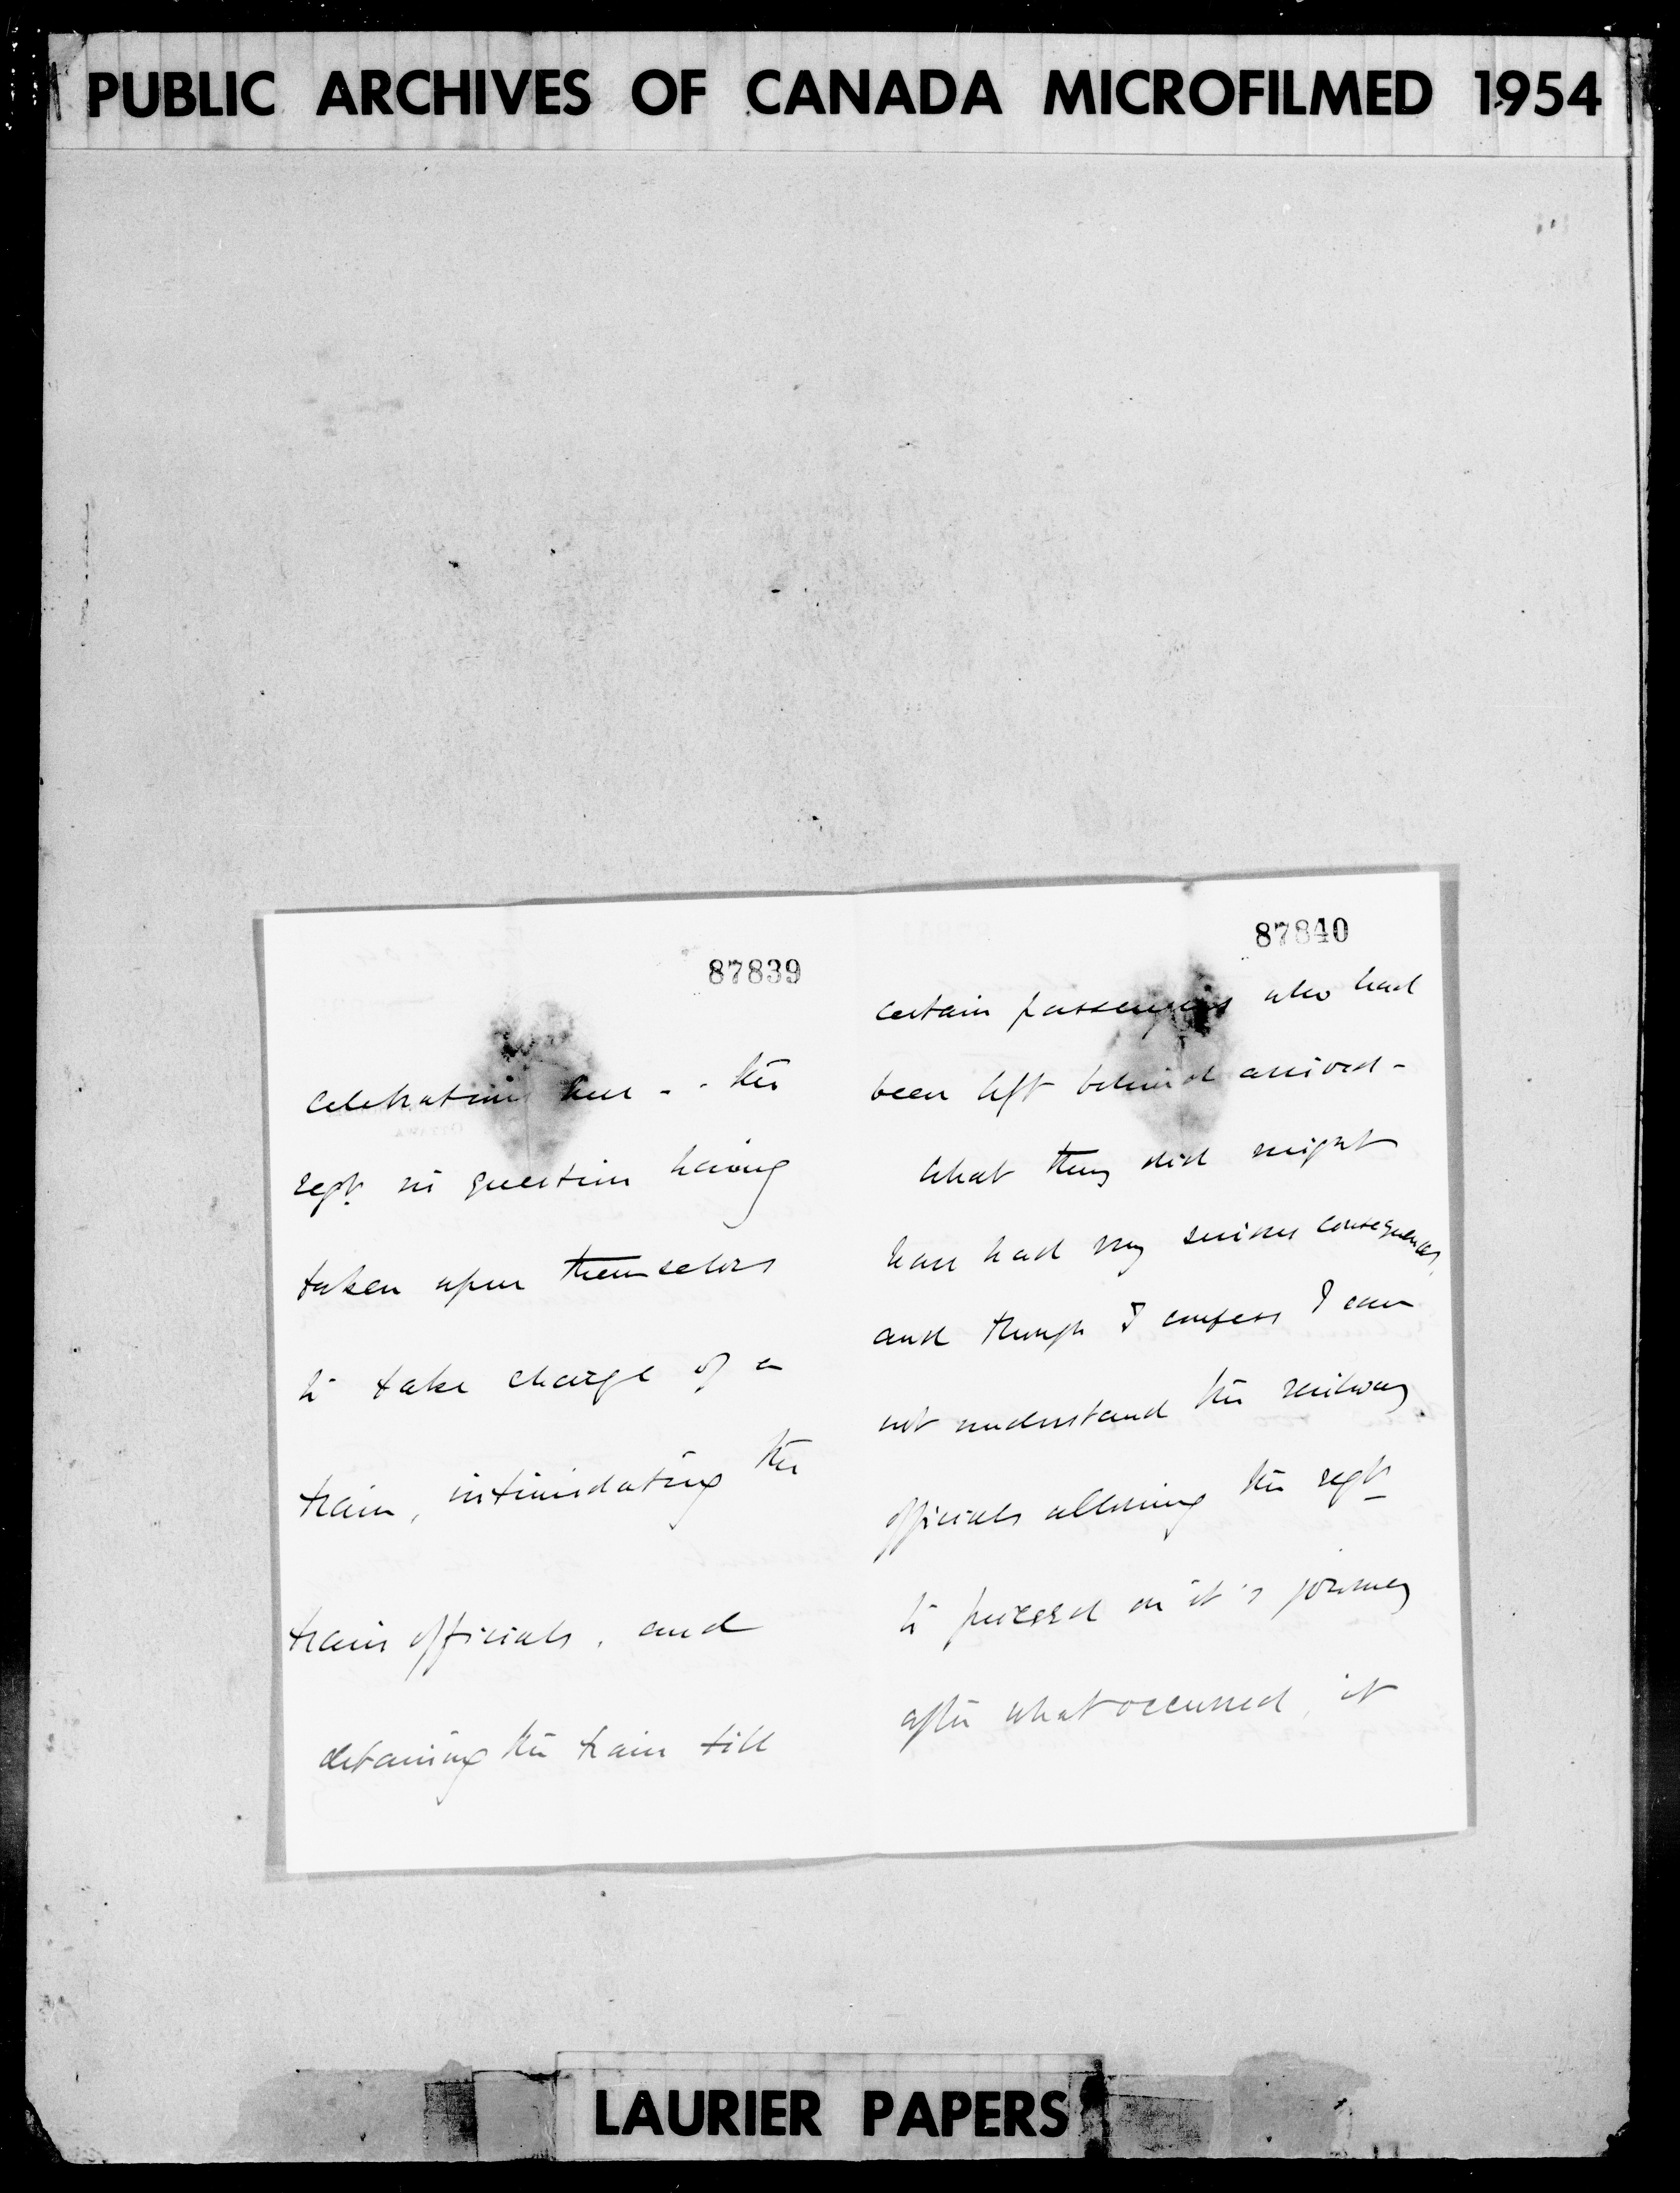 PUBLIC ARCHIVES OF CANADA MICROFILMED 1954
87839
celebration here - the
regt. in question having
taken upon themselves
to take charge of a
train, intimidating the
train officials, and
detaining the train till
87840
certain passengers who had
been left behind arrived -
What they did might
have had very serious consequences,
and though I confess I can
not understand the railway
officials allowing the regt
to proceed on it's journey
after what occurred, it
LAURIER PAPERS